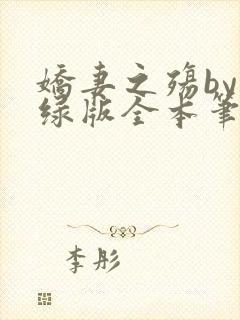 娇妻之殇by
绿版全本笔
李彤